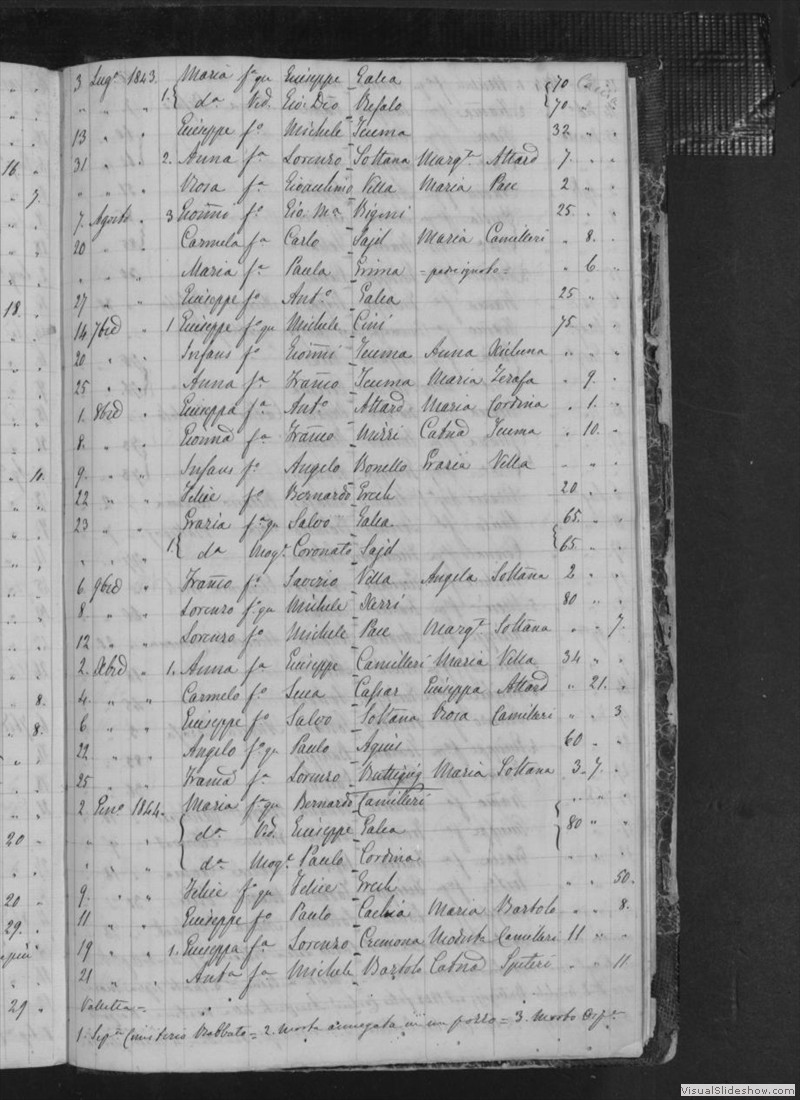 3 Lugo 1843. Maria fa qu Giuseppe Galea 70
1. { da Ved. Gio: Dio Bufalo 70
13 Giuseppe fo Michele Teuma 32
31 2. Anna fa Lorenzo Sottana Margta Attard 7
Rosa fa Gioachino Vella Maria Pace 2
7 Agosto 3 Gioãni fo Gio. Ma 25
20 Carmela fa Carlo Sajd Maria Camilleri 8
Maria fa Paula Grima = padre ignoto = 6
27 Giuseppe fo Anto Galea 25
14 7bre 1 Giuseppe fo qu Michele Cini 75
20 Infans fo Gioãni Teuma Anna
25 Anna fa Franco Teuma Maria Zerafa 9
1 8bre Giuseppa fa Anto Attard Maria Cordina 1
8 fa Franco Mizzi Catna Teuma 10
9 Infans fo Angelo Bonello Grazia Vella
22 Felice fo Bernardo Grech 20
23 Grazia fa qu Salvo Galea 65
1. { da Moge Coronato Sajd 65
6 9bre Franco fo Saverio Vella Angela Sottana 2
8 Lorenzo fo qu Michele Xerri 80
12 Lorenzo fo Michele Pace Margta Sottana 7
2 Xbre 1. Anna fa Giuseppe Camilleri Maria Vella 34
4 Carmelo fo Luca Cassar Giuseppa Attard 21
6 Giuseppe fo Salvo Sottana Rosa Camilleri 3
22 Angelo fo qu Paulo Agius 60
25 Franca fa Lorenzo Buttigieg Maria Sottana 3 7
2 Geno 1844. Maria fa qu Bernardo Camilleri
da Ved. Giuseppe Galea 80
da Moge Paulo Cordina
9 Felice fo qu Felice Grech 50
11 Giuseppe fo Paulo Cachia Maria Bartolo 8
19 1. Giuseppa fa Lorenzo Cremona Modesta Camilleri 11
21 Anta fa Michele Bartolo Catna Spiteri 11
Valletta =
1. Cimiterio Rabbato = 2. Morta annegata in un pozzo = 3. Morbo
16
7.
18.
11.
8.
8.
20
20
29.
29
VisualSlideshow.com